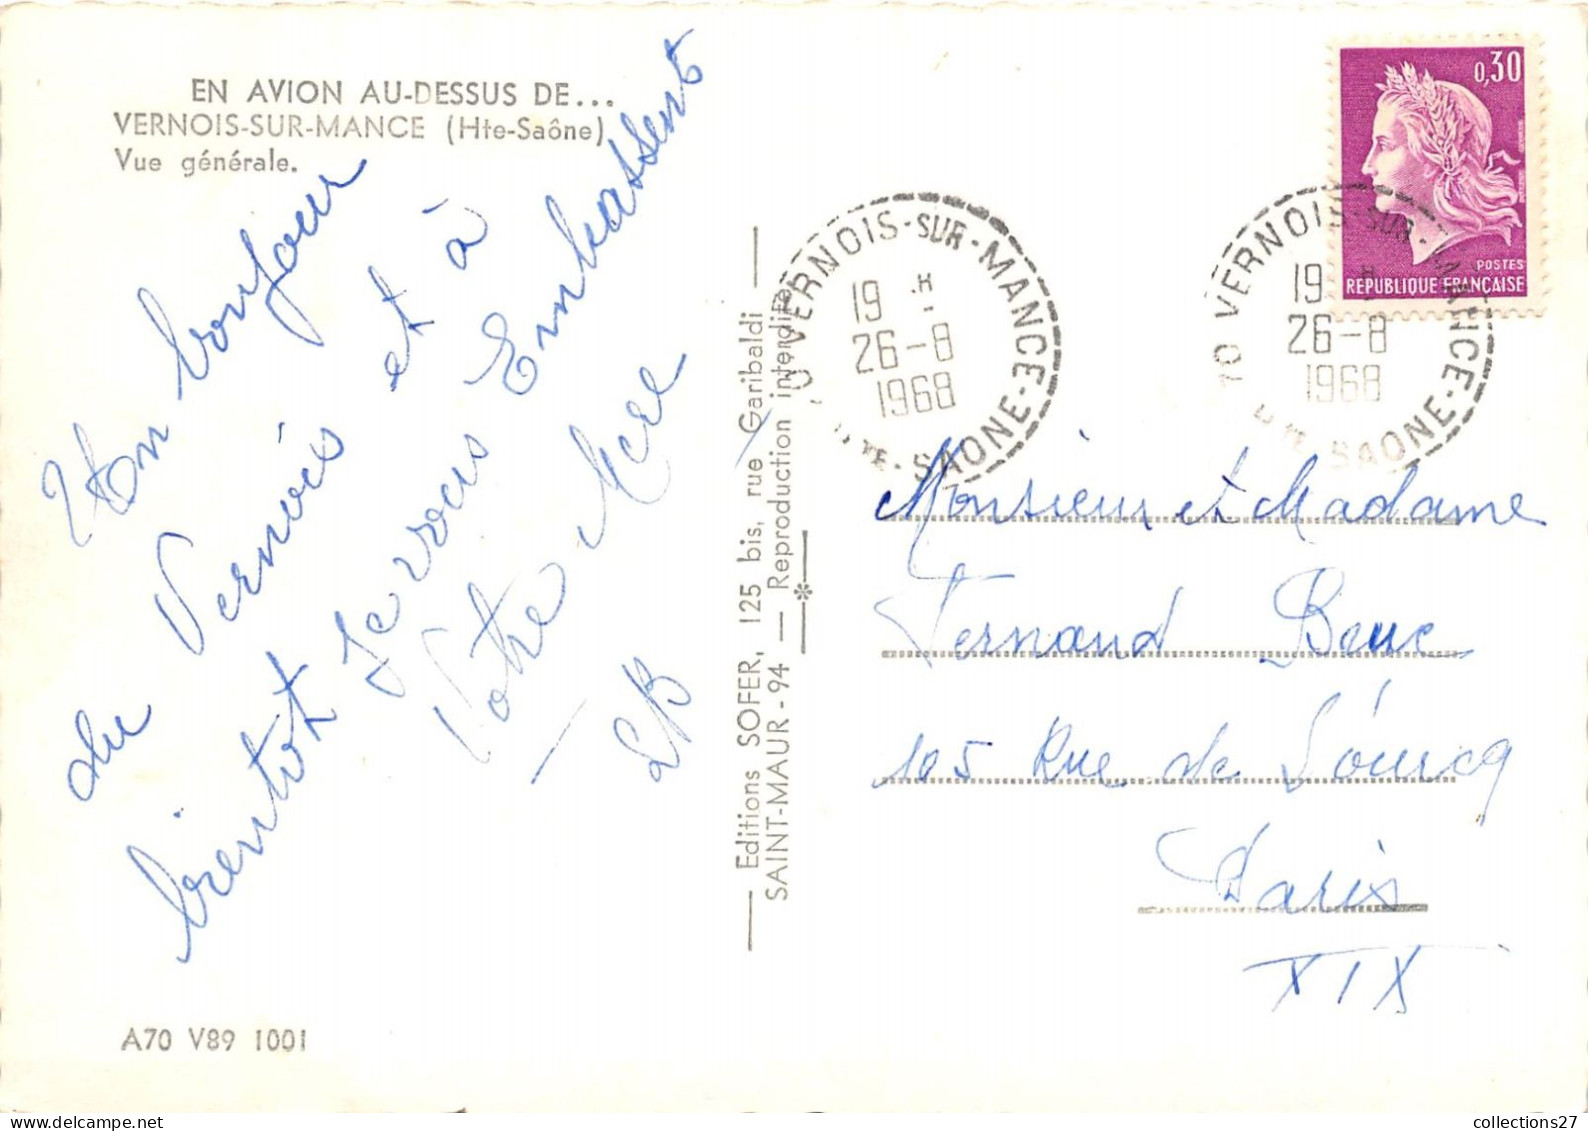 EN AVION AU-DESSUS DE...
VERNOIS-SUR-MANCE (Hte-Saône)
Vue générale.
Un bonjour
du Vernois et à
bientot Je vous Embrassent
Votre Mere
LB
A70 V89 1001
Editions SOFER, 125 bis, rue Garibaldi
SAINT-MAUR - 94 — Reproduction interdite
70 VERNOIS-SUR-MANCE
19 H
26-8
1968
HTE-SAONE
70 VERNOIS-SUR-MANCE
19 H
26-8
1968
HTE-SAONE
0,30
POSTES
REPUBLIQUE FRANÇAISE
Monsieur et Madame
Fernand Beuc
105 Rue de L'ourcq
Paris
XIX
collections27